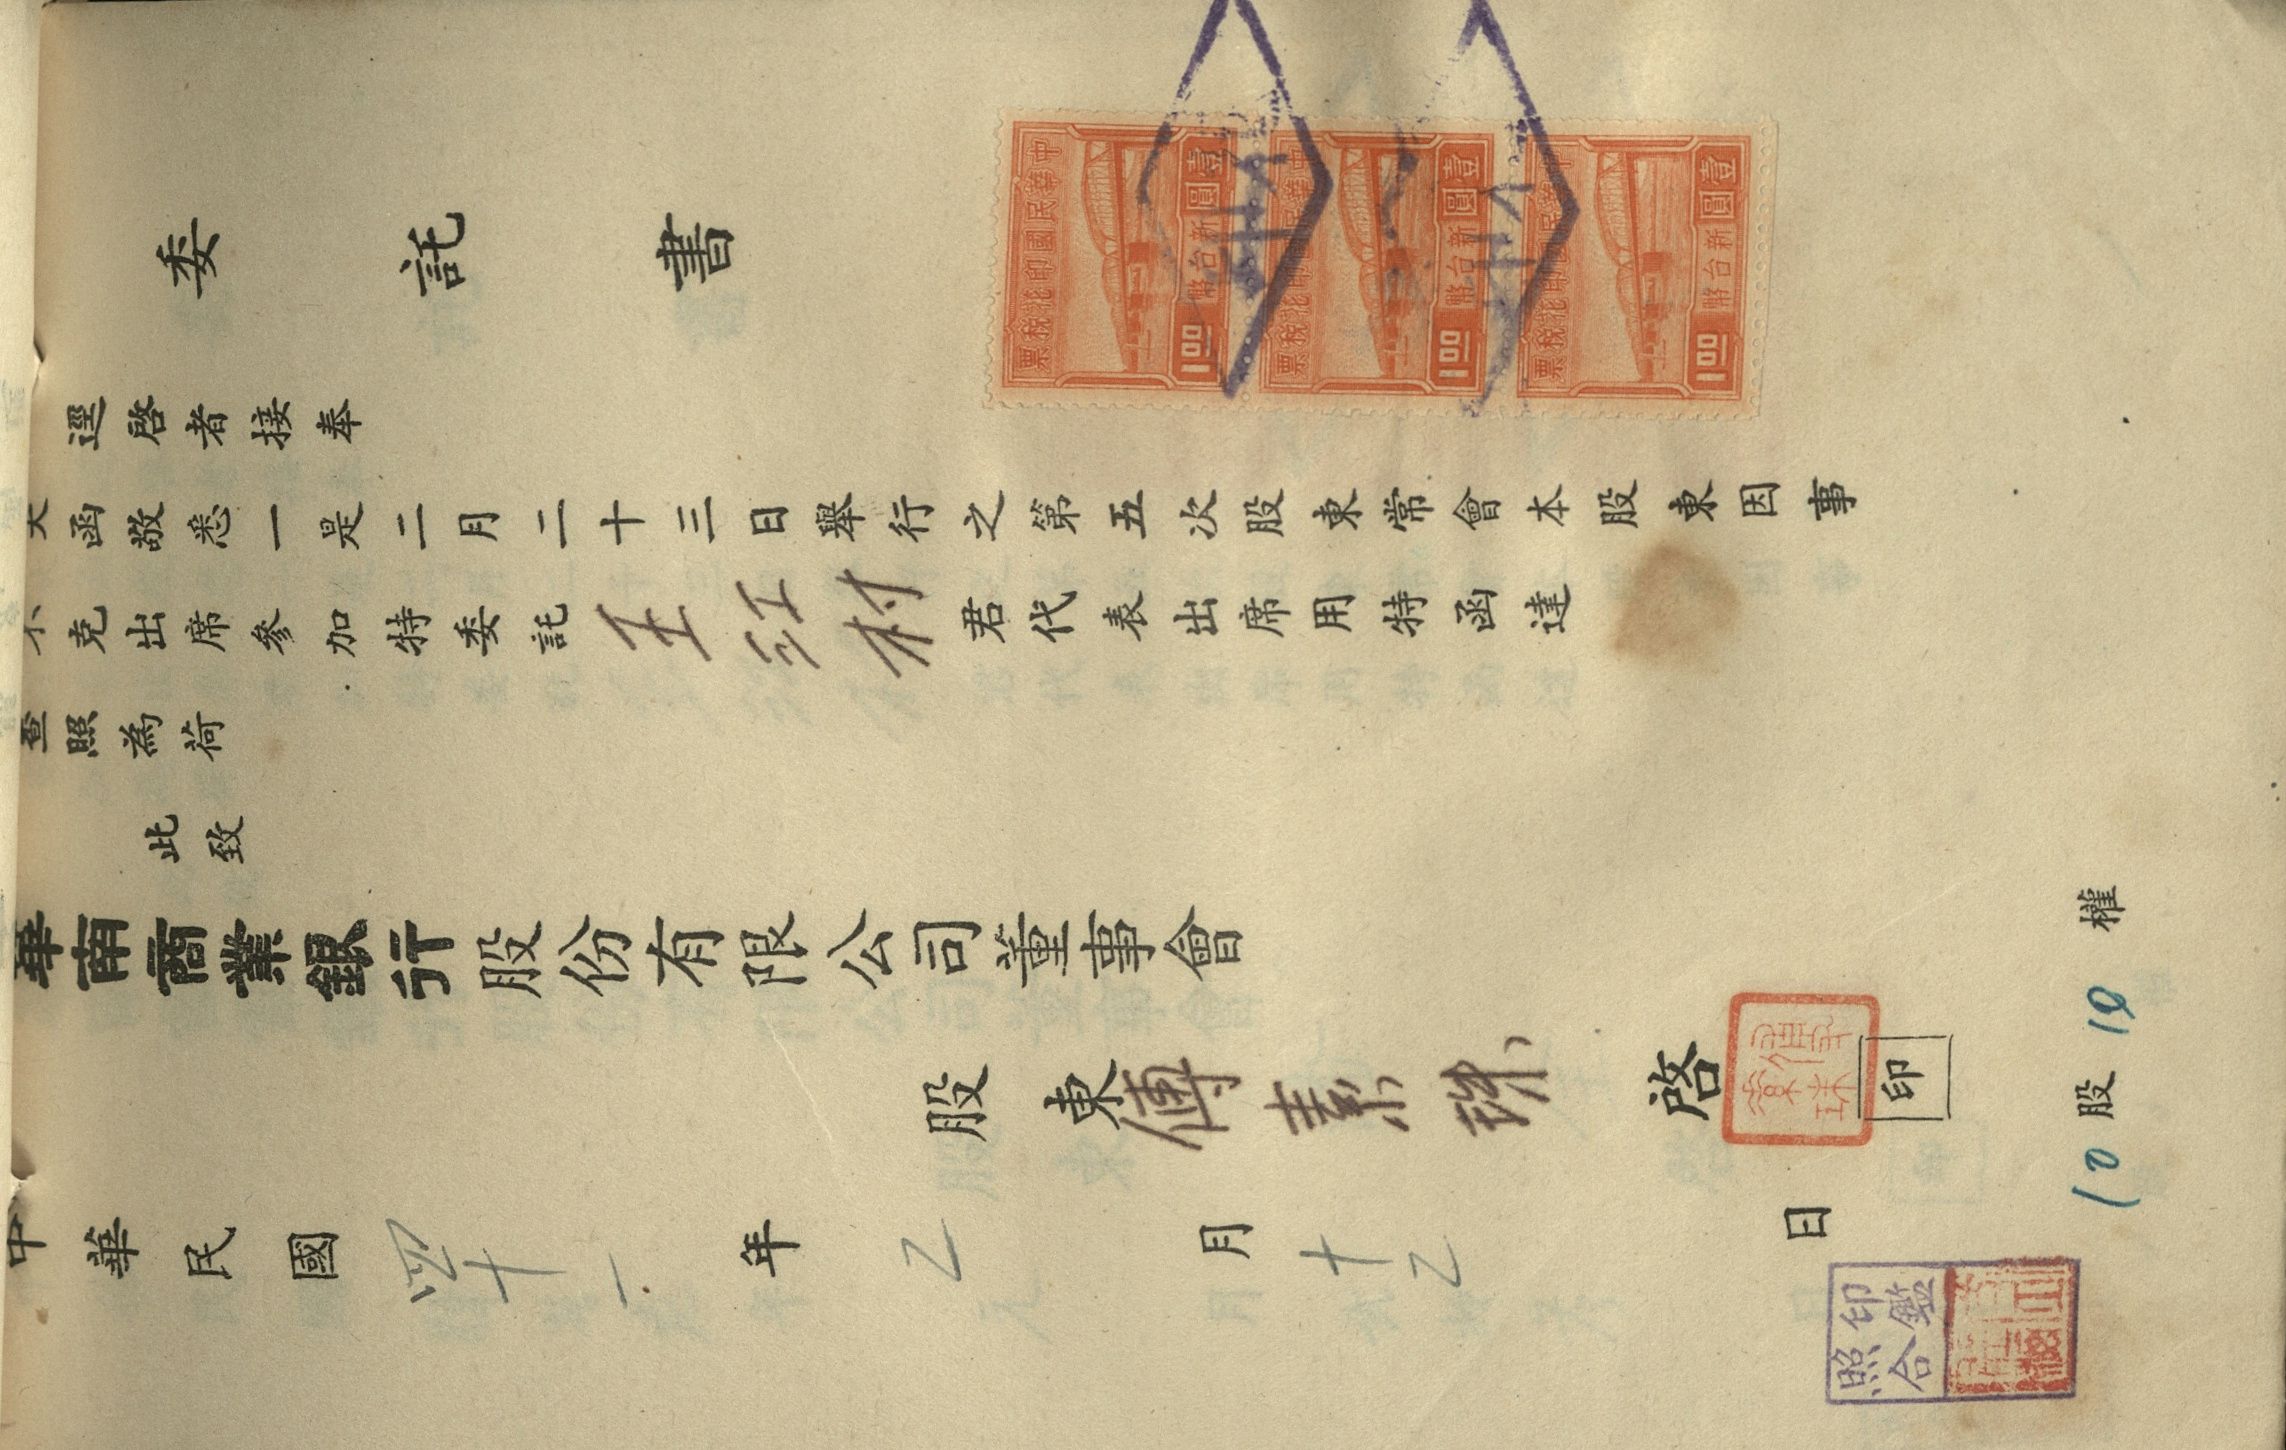 委託書
逕啓者接奉
大函敬悉一是二月二十三日舉行之第五次股東常會本股東因事
不克出席參加特委託王江村君代表出席用特函達
查照為荷
此致
華南商業銀行股份有限公司董事會
股東傅素珠啓
印
中華民國四十一年乙月十乙日
10股10權
印鑑照合
中華民國印花稅票
壹圓新台幣
1.00
中華民國印花稅票
壹圓新台幣
1.00
中華民國印花稅票
壹圓新台幣
1.00